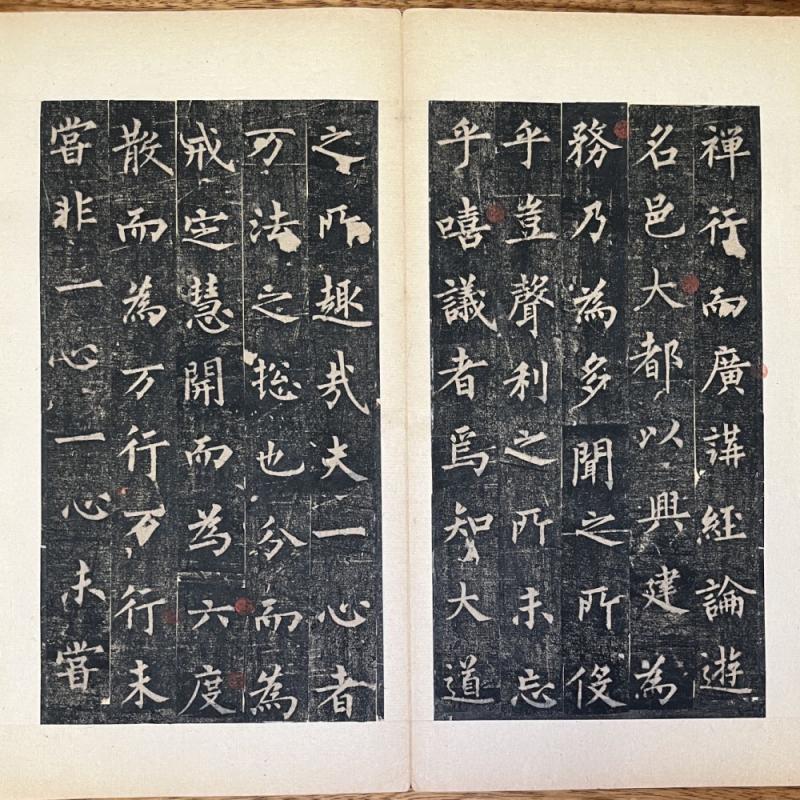 禪行而廣講經論遊
名邑大都以興建為
務乃為多聞之所伇
乎豈聲利之所未忘
乎嘻議者焉知大道
之所趣㢤夫一心者
万法之総也分而為
戒定慧開而為六度
散而為万行万行未
嘗非一心一心未嘗